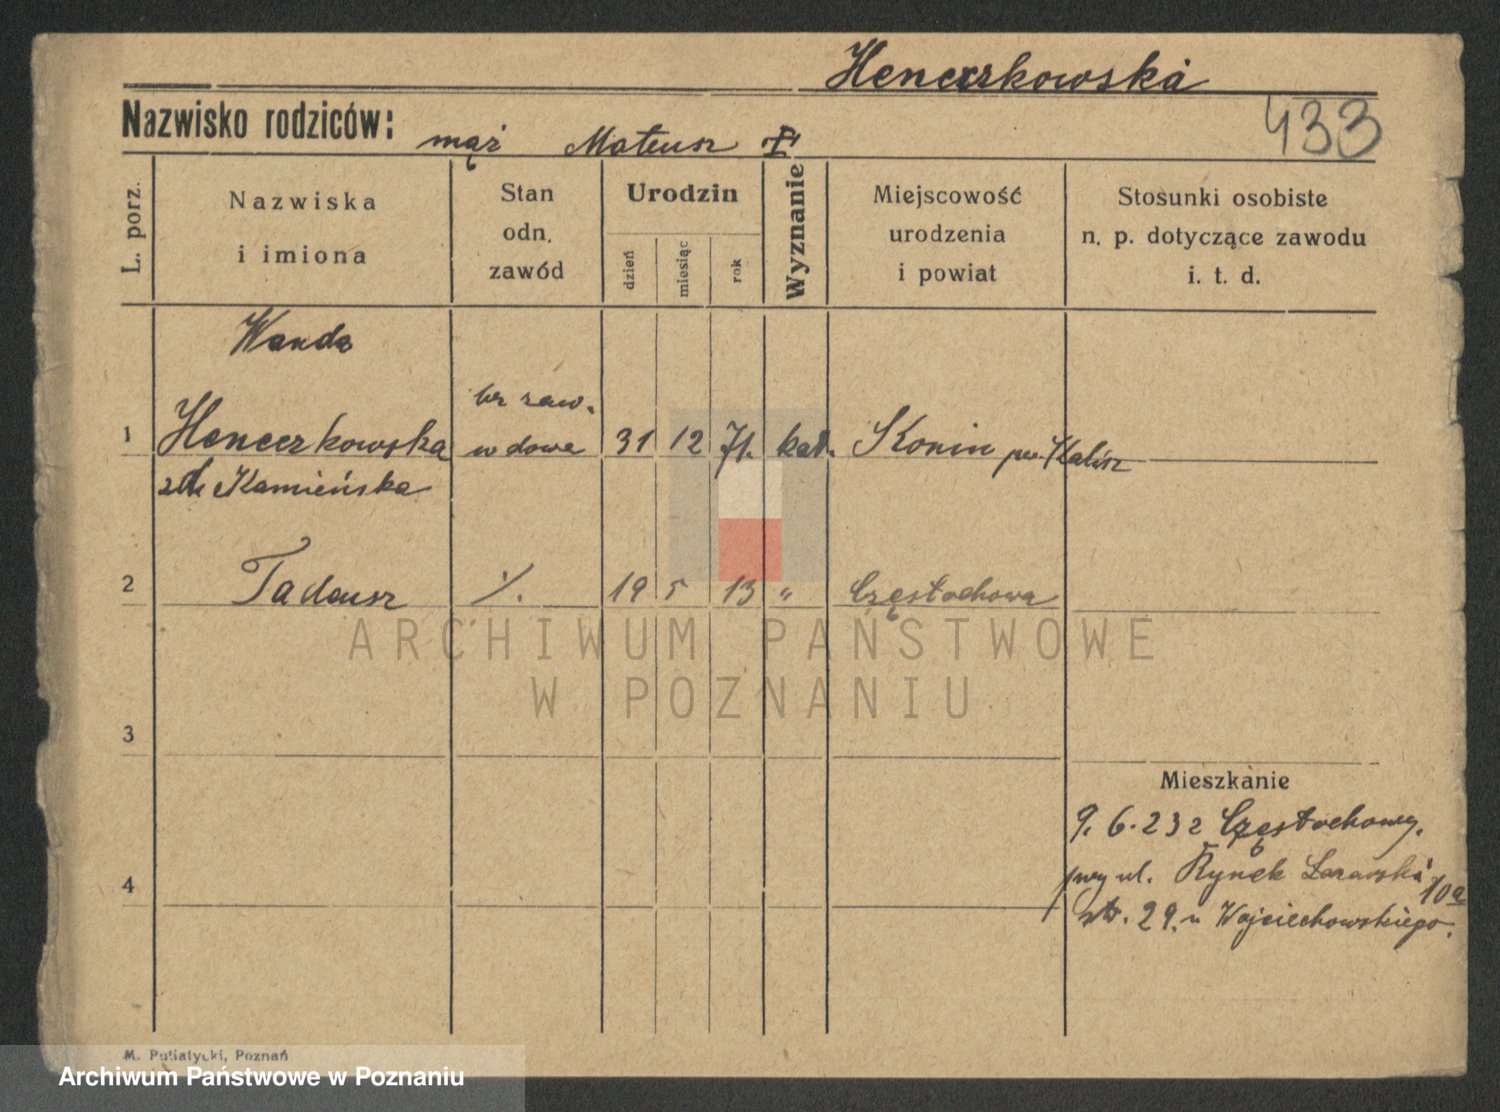 Henczkowska
433
Nazwisko rodziców:
mąż Mateusz
L. porz.
Nazwiska
i imiona
Stan
odn.
zawód
Urodzin
dzień
miesiąc
rok
Wyznanie
Miejscowość
urodzenia
i powiat
Stosunki osobiste
n. p. dotyczące zawodu
i. t. d.
Wanda
1 bz zaw.
wdowa 31 12 71. kat. Konin pow. Kalisz
Kamieńska
2 Tadeusz ./. 19 5 13 " Częstochowa
3
4
Mieszkanie
9. 6. 23 z Częstochowy.
przy ul. Rynek Łazarski 10a
ptr. 29. u Wojciechowskiego.
M. Putiatycki, Poznań
ARCHIWUM PAŃSTWOWE
W POZNANIU
Archiwum Państwowe w Poznaniu